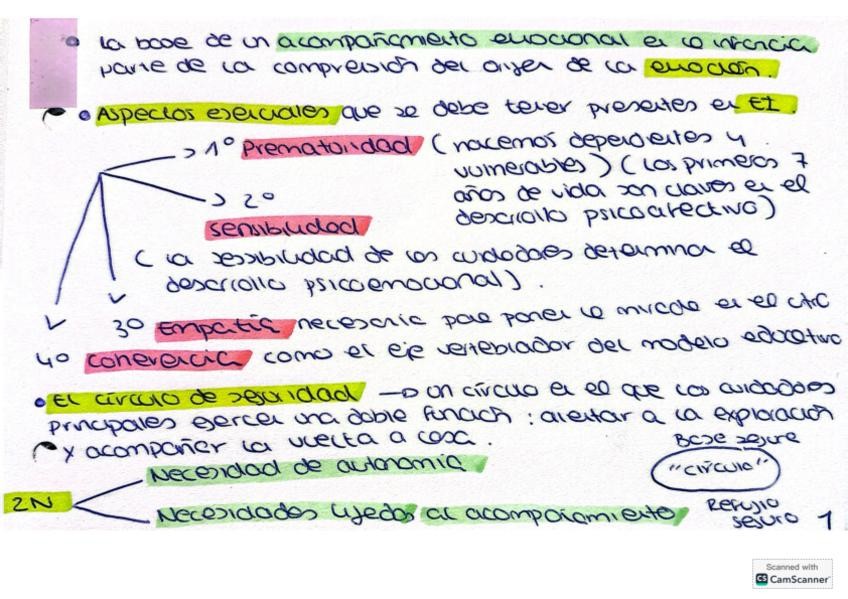 La base de un acompañamiento emocional en la infancia
parte de la compresión del origen de la emoción.
Aspectos esenciales que se debe tener presentes en EI.
> 1º Prematuridad (nacemos dependientes y
vulnerables) (Los primeros 7
años de vida son claves en el
desarrollo psicoafectivo)
> 2º
sensibilidad
(La sensibilidad de los cuidadores determina el
desarrollo psicoemocional).
3º Empatía necesaria para poner la mirada en el otro
4º coherencia como el eje vertebrador del modelo educativo
El círculo de seguridad → un círculo en el que los cuidadores
principales ejercen una doble función: alentar a la exploración
y acompañar la vuelta a casa.
Base segura
"círculo"
Refugio
seguro
2N
Necesidad de autonomía
Necesidades ligadas al acompañamiento
1
Scanned with
CS CamScanner